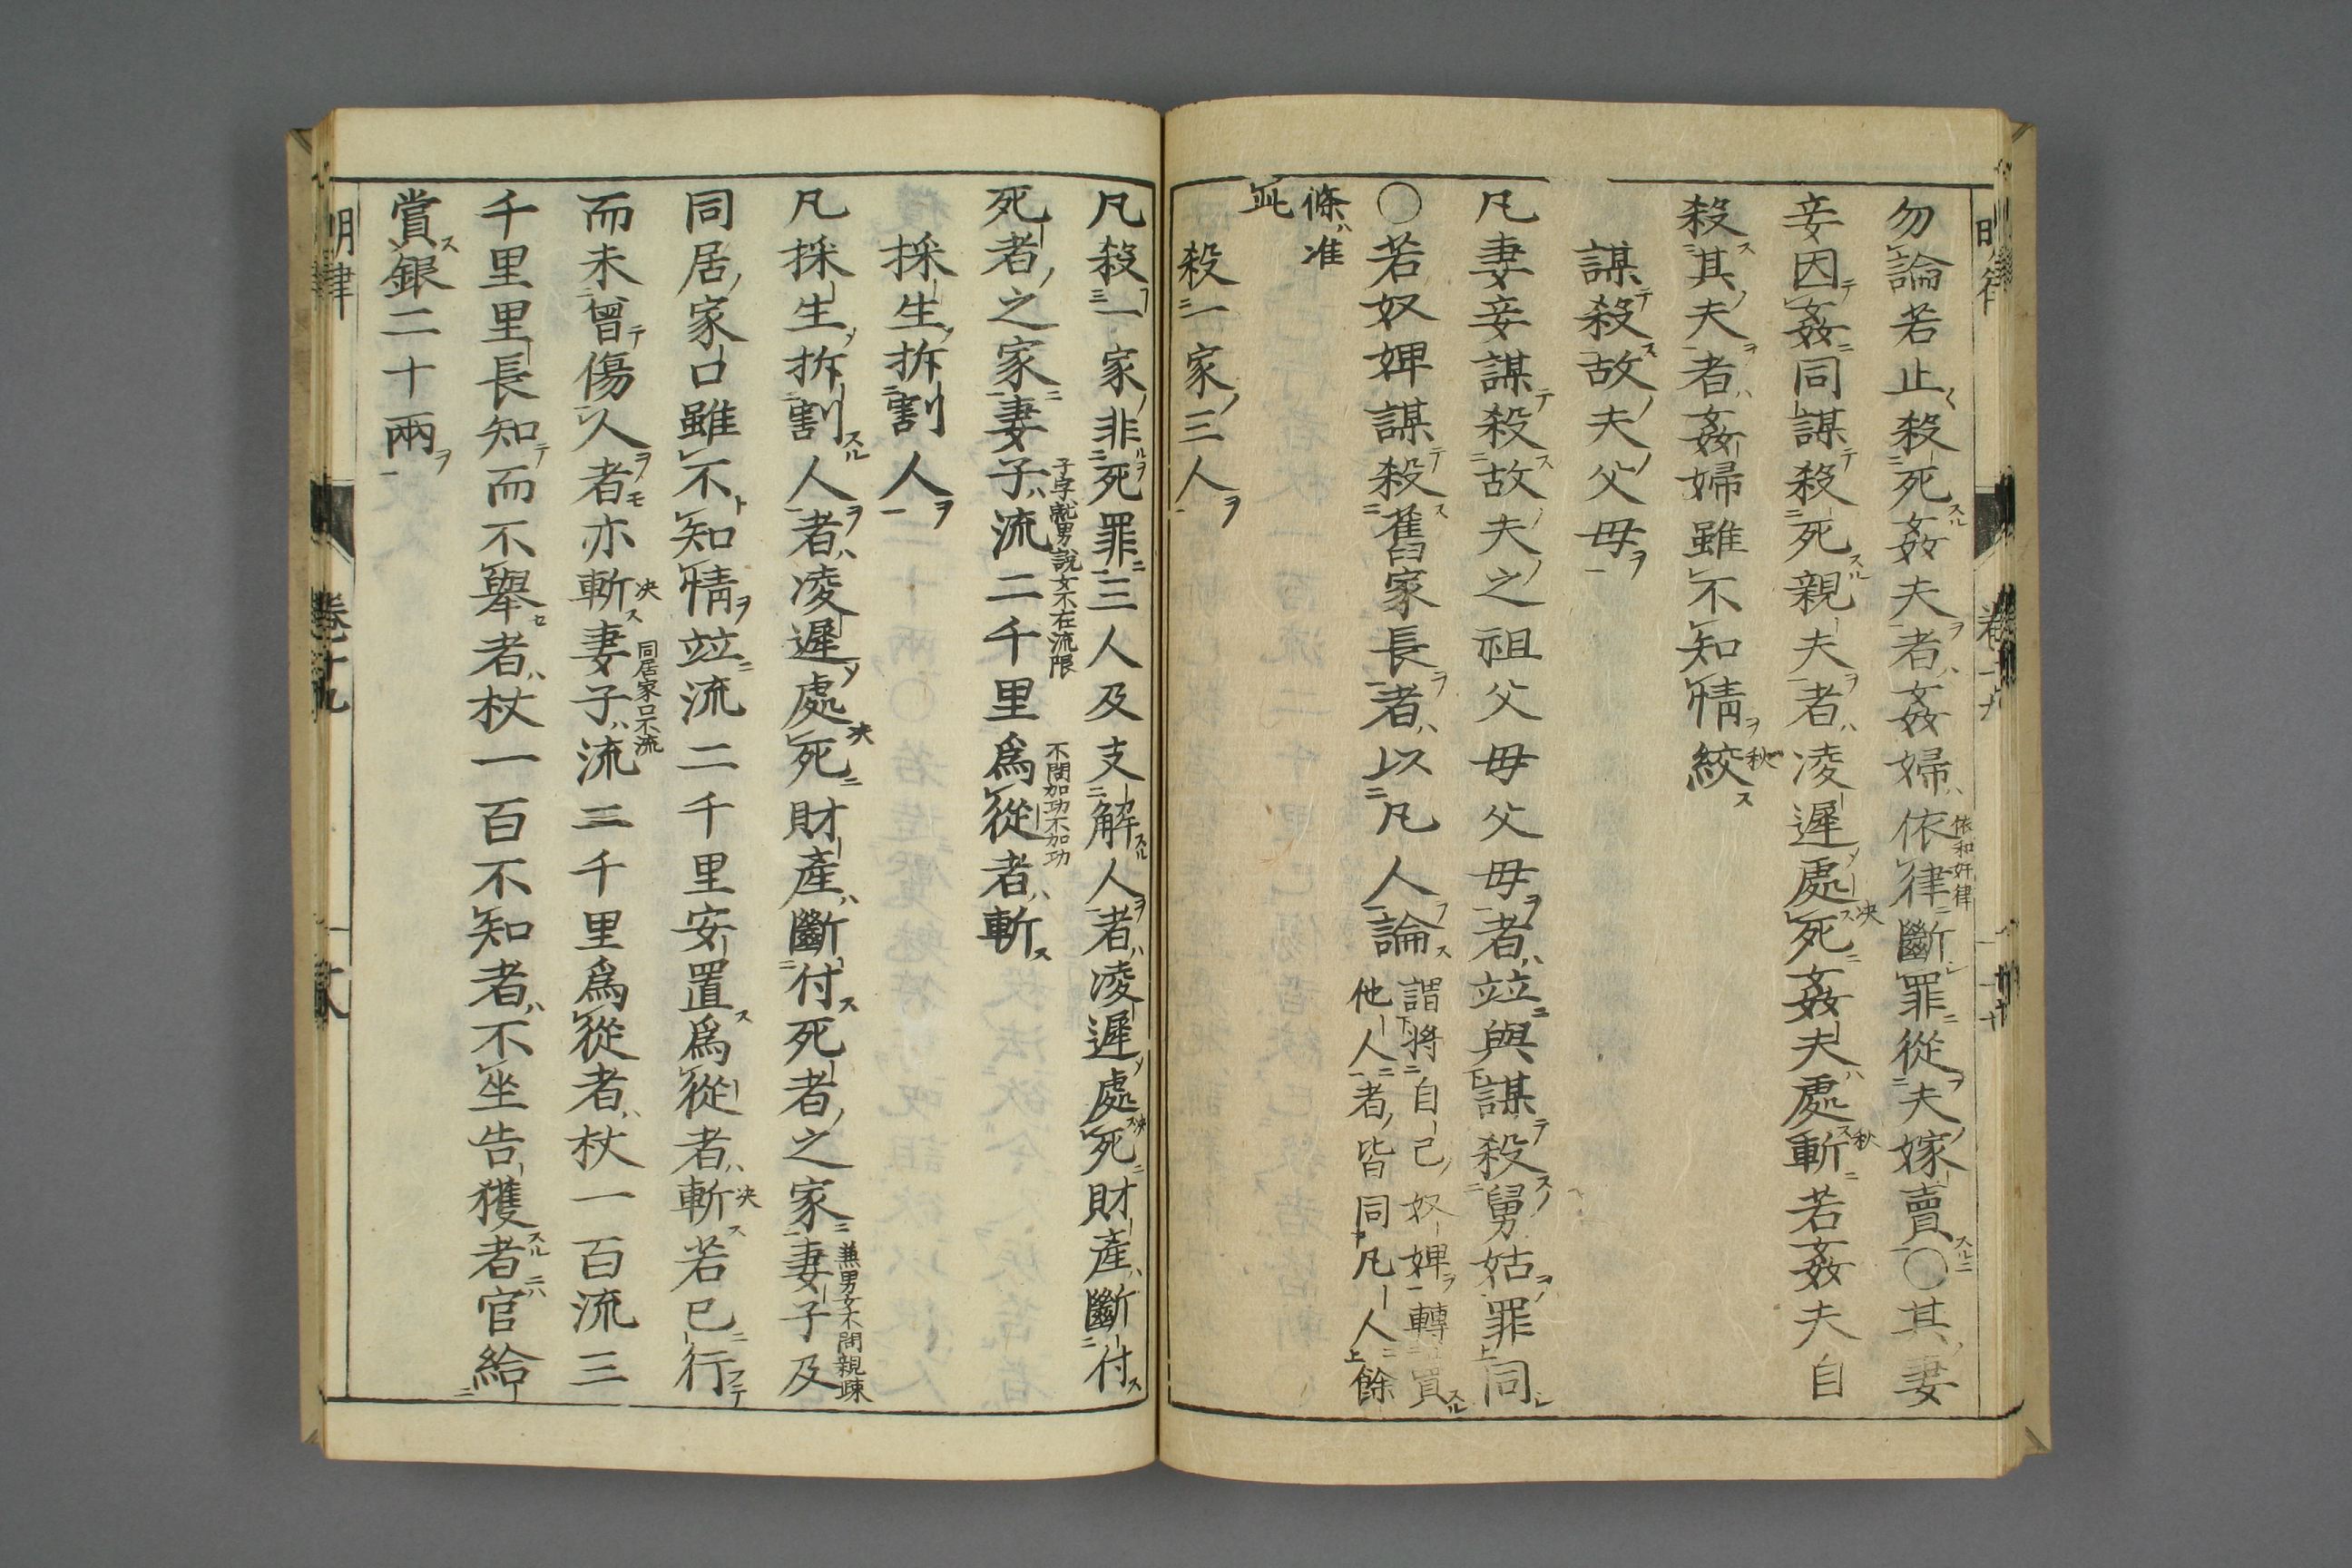 勿論若止殺死姦夫者姦婦依律斷罪從夫嫁賣〇其妻
依和奸律
妾因姦同謀殺死親夫者凌遲處死姦夫處斬若姦夫自
決
秋
殺其夫者姦婦雖不知情絞
秋
謀殺故夫父母
凡妻妾謀殺故夫之祖父母父母者竝與謀殺舅姑罪同
〇若奴婢謀殺舊家長者以凡人論
謂將自己奴婢轉賣
他人者皆同凡人餘
條准
此
殺一家三人
凡殺一家非死罪三人及支解人者凌遲處死財產斷付
決
死者之家妻子流二千里爲從者斬
子字就男說女不在流限
不問加功不加功
採生拆割人
凡採生拆割人者凌遲處死財產斷付死者之家妻子及
決
兼男女不問親疎
同居家口雖不知情竝流二千里安置爲從者斬若已行
決
而未曾傷人者亦斬妻子流三千里爲從者杖一百流三
決
同居家口不流
千里里長知而不舉者杖一百不知者不坐告獲者官給
賞銀二十兩
明律
卷十九